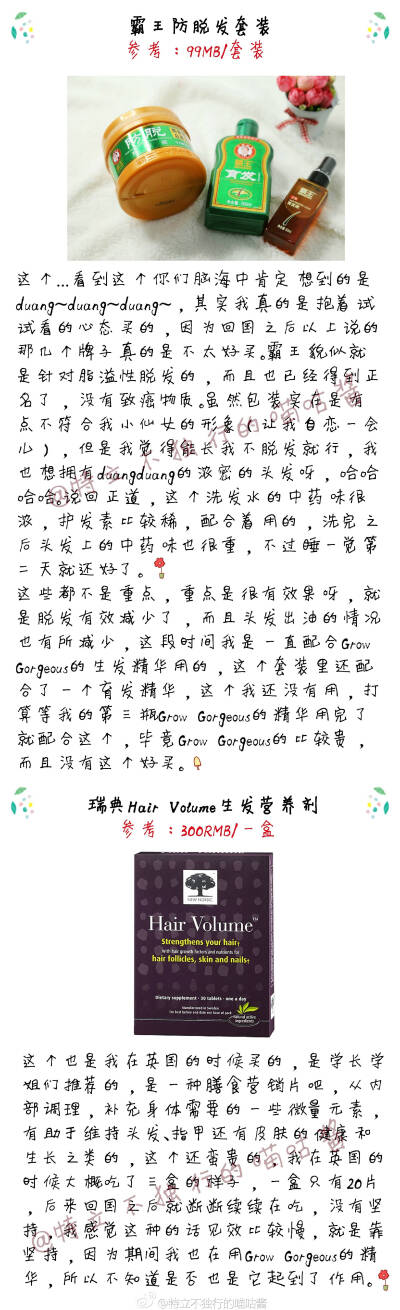 霸王防脱发套装
参考：99MB/套装
防脱
霸王
育发
霸王
这个...看到这个你们脑海中肯定想到的是
duang~duang~duang~，其实我真的是抱着试
试看的心态买的，因为回国之后以上说的
那几个牌子真的是不太好买。霸王貌似就
是针对脂溢性脱发的，而且也已经得到正
名了，没有致癌物质。虽然包装实在是有
点不符合我小仙女的形象（让我自恋一会
儿），但是我觉得能长我不脱发就行，我
也想拥有duangduang的浓密的头发呀，哈哈
哈哈。说回正道，这个洗发水的中药味很
浓，护发素比较稀，配合着用的，洗完之
后头发上的中药味也很重，不过睡一觉第
二天就还好了。
这些都不是重点，重点是很有效果呀，就
是脱发有效减少了，而且头发出油的情况
也有所减少，这段时间我是一直配合Grow
Gorgeous的生发精华用的，这个套装里还配
合了一个育发精华，这个我还没有用，打
算等我的第三瓶Grow Gorgeous的精华用完了
就配合这个，毕竟Grow Gorgeous的比较贵，
而且没有这个好买。
@特立不独行的喵咕酱
瑞典Hair Volume生发营养剂
参考：300RMB/一盒
NEW NORDIC
Hair Volume™
Strengthens your hair†
With hair growth factors and nutrients for
hair follicles, skin and nails†
Dietary supplement · 30 tablets · one a day
Manufactured in Sweden
natural active
ingredients
这个也是我在英国的时候买的，是学长学
姐们推荐的，是一种膳食营销片吧，从内
部调理，补充身体需要的一些微量元素，
有助于维持头发、指甲还有皮肤的健康和
生长之类的，这个还蛮贵的，我在英国的
时候大概吃了三盒的样子，一盒只有20片
，后来回国之后就断断续续在吃，没有坚
持，我感觉这种的话见效比较慢，就是靠
坚持，因为期间我也在用Grow Gorgeous的精
华，所以不知道是否也是它起到了作用。
@特立不独行的喵咕酱
@特立不独行的喵咕酱